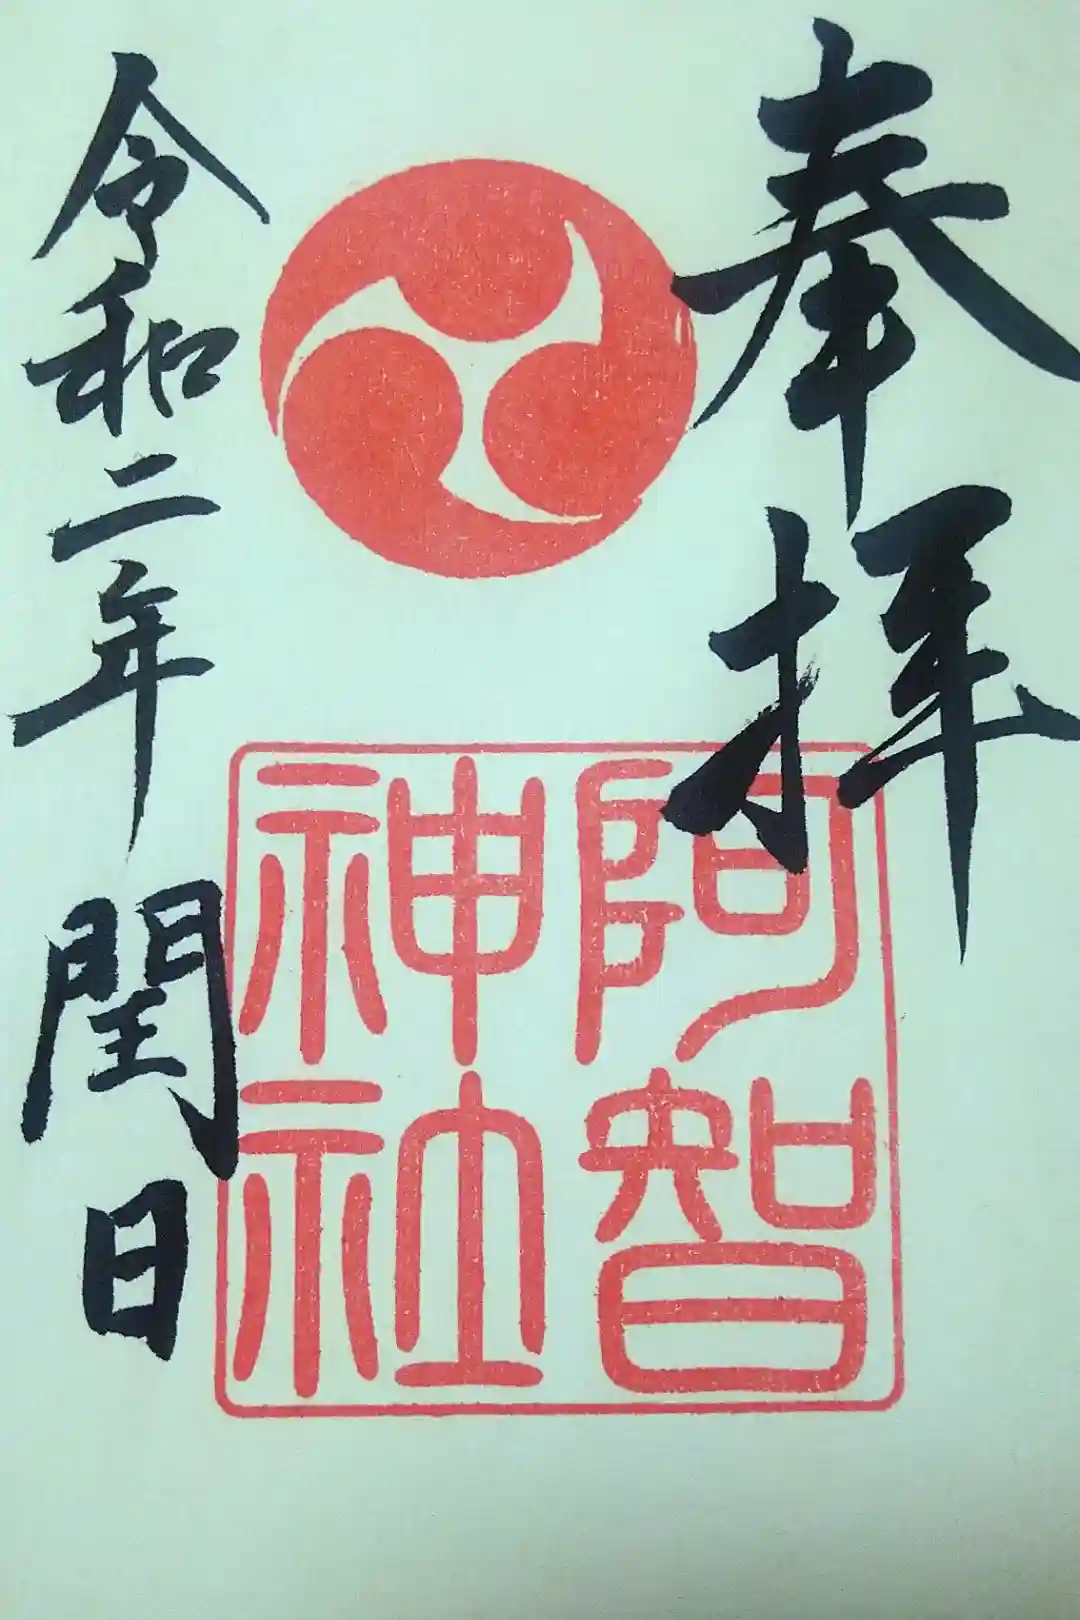 奉拝
阿智
神社
令和二年閏日